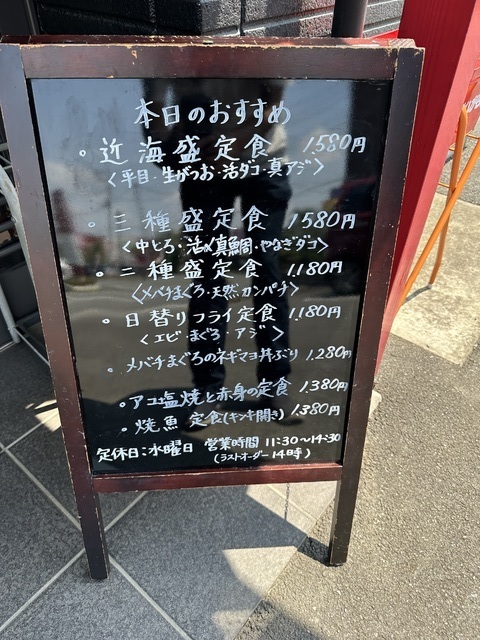 本日のおすすめ
・近海盛定食 1580円
〈平目・生がつお・活ダコ・真アジ〉
・三種盛定食 1580円
〈中とろ・活〆真鯛・やなぎダコ〉
・二種盛定食 1180円
〈メバチまぐろ・天然カンパチ〉
・日替りフライ定食 1,180円
〈エビ・まぐろ・アジ〉
・メバチまぐろのネギマヨ丼ぶり 1,280円
・アコ塩焼と赤身の定食 1,380円
・焼魚 定食(キンキ開き) 1,380円
定休日:水曜日 営業時間 11:30〜14:30
(ラストオーダー 14時)